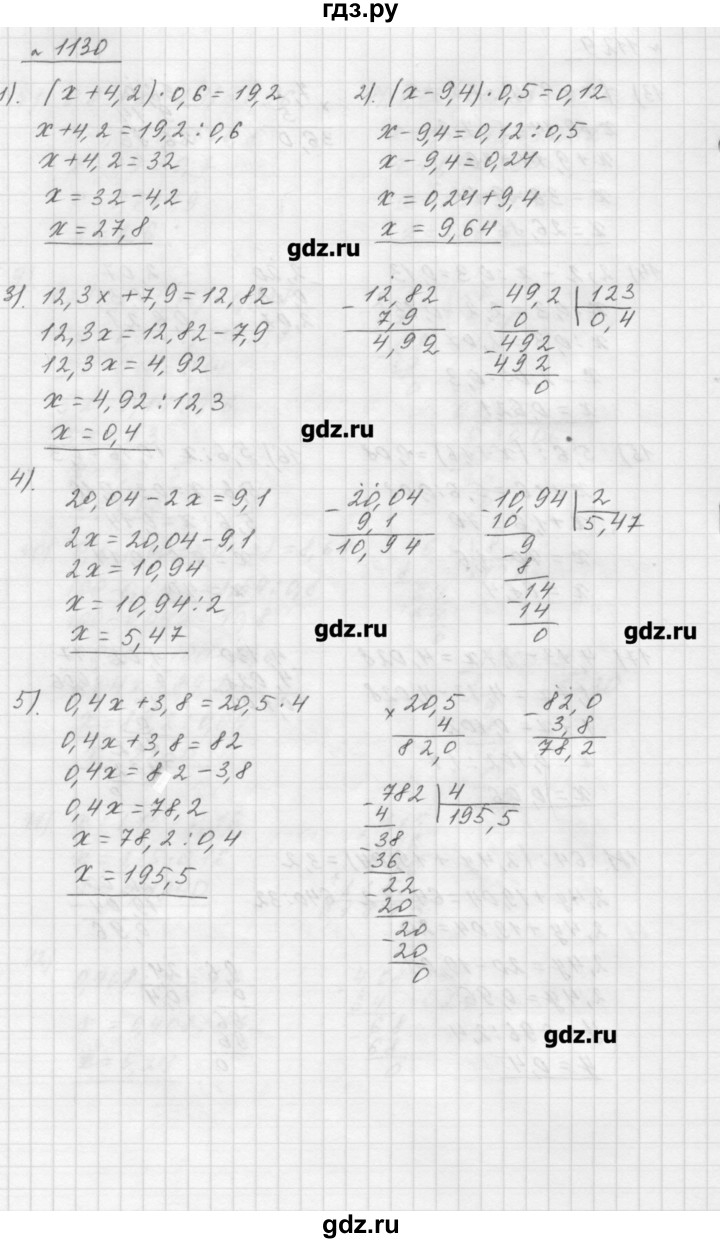 гдз.ру
№ 1130
1). (x+4,2)·0,6=19,2
x+4,2=19,2:0,6
x+4,2=32
x=32-4,2
x=27,8
2). (x-9,4)·0,5=0,12
x-9,4=0,12:0,5
x-9,4=0,24
x=0,24+9,4
x = 9,64
gdz.ru
3). 12,3x+7,9=12,82
12,3x=12,82-7,9
12,3x=4,92
x=4,92:12,3
x=0,4
-12,82
7,9
4,92
-49,2 | 123
0 | 0,4
-492
492
0
gdz.ru
4).
20,04-2x=9,1
2x=20,04-9,1
2x=10,94
x=10,94:2
x=5,47
-20,04
9,1
10,94
-10,94 | 2
10 | 5,47
-9
8
-14
14
0
gdz.ru
gdz.ru
5). 0,4x+3,8=20,5·4
0,4x+3,8=82
0,4x=82-3,8
0,4x=78,2
x=78,2:0,4
x=195,5
×20,5
4
82,0
-82,0
3,8
78,2
-782 | 4
4 | 195,5
-38
36
-22
20
-20
20
0
gdz.ru
gdz.ru